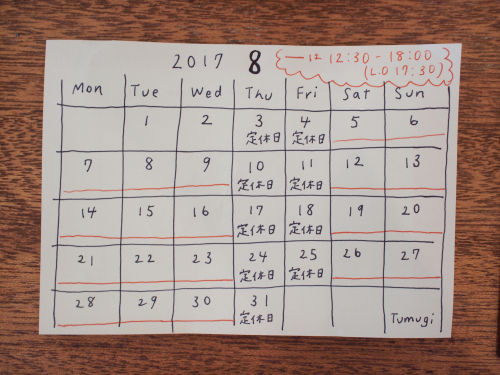 2017 8
— は 12:30 - 18:00
(L.O 17:30)
Mon Tue Wed Thu Fri Sat Sun
1 2 3 4 5 6
定休日 定休日
7 8 9 10 11 12 13
定休日 定休日
14 15 16 17 18 19 20
定休日 定休日
21 22 23 24 25 26 27
定休日 定休日
28 29 30 31
定休日
Tumugi